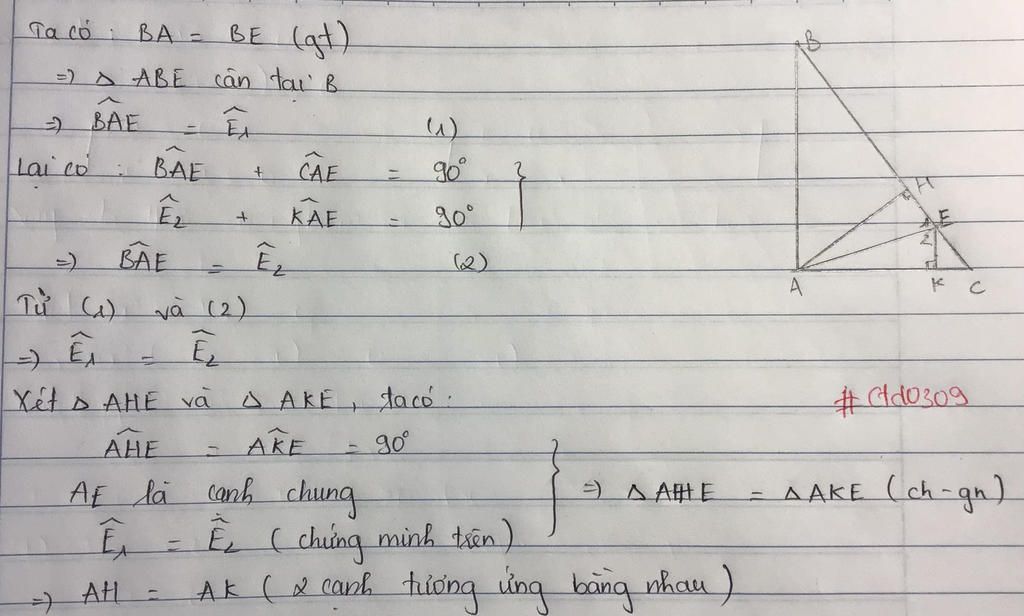 Ta có : BA = BE (gt)
=> △ ABE cân tại B
=> B̂AE = Ê₁ (1)
Lại có : B̂AE + ĈAE = 90°
Ê₂ + K̂AE = 90°
=> B̂AE = Ê₂ (2)
Từ (1) và (2)
=> Ê₁ = Ê₂
Xét △ AHE và △ AKE, ta có :
ÂHE = AK̂E = 90°
AE là cạnh chung
Ê₁ = Ê₂ (chứng minh trên)
=> △AHE = △AKE (ch-gn)
=> AH = AK (2 cạnh tương ứng bằng nhau)
B
H
E
1
2
A
K
C
#Ctd0309